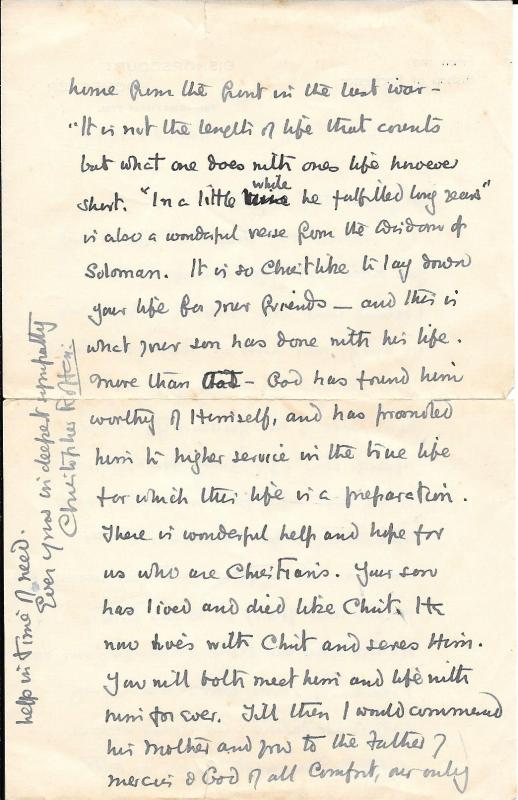 home from the front in the last war –
"It is not the length of life that counts
but what one does with ones life however
short. "In a little while he fulfilled long years"
is also a wonderful verse from the Wisdom of
Soloman. It is so Christlike to lay down
your life for your friends – and this is
what your son has done with his life.
More than that – God has found him
worthy of Himself, and has promoted
him to higher service in the true life
for which this life is a preparation.
There is wonderful help and hope for
us who are Christians. Your son
has lived and died like Christ. He
now lives with Christ and serves Him.
You will both meet him and life with
him for ever. Till then I would commend
his Mother and you to the Father of
mercies & God of all Comfort, our only
help in time of need.
Ever yours in deepest sympathy
Christopher